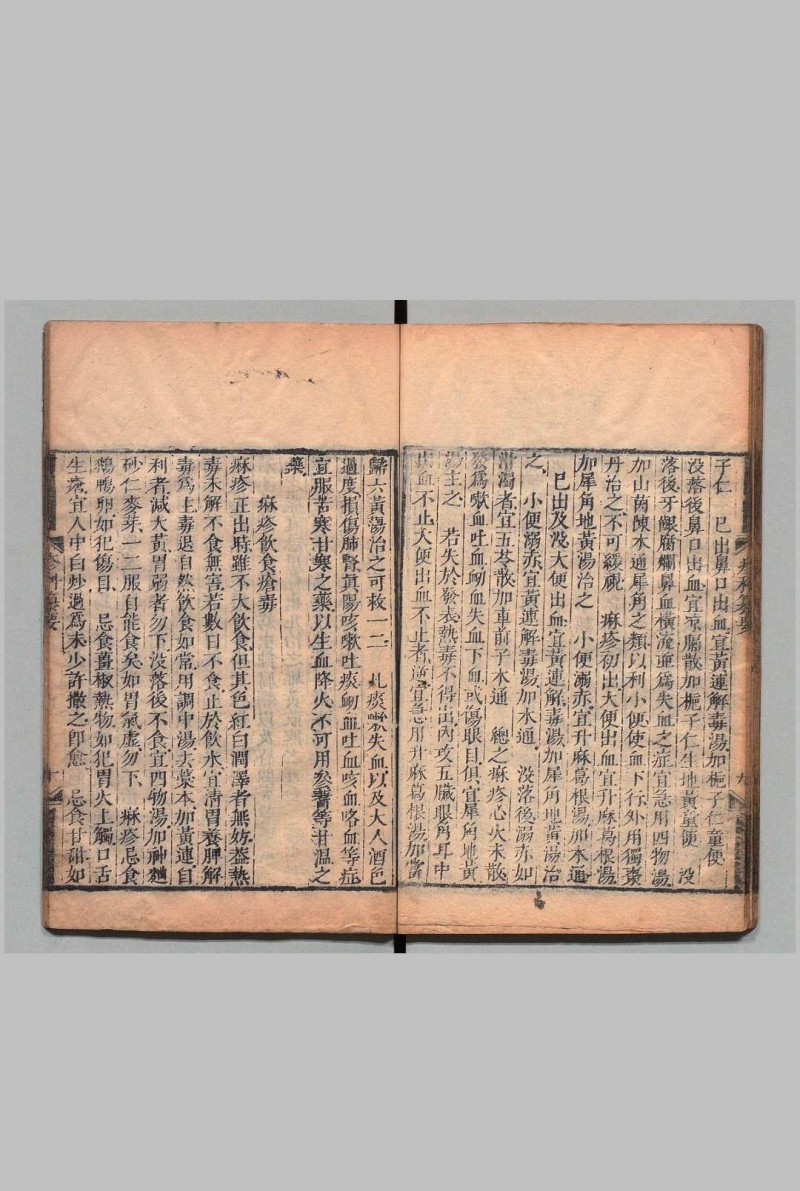 子仁　已出鼻口出血宜黃連解毒湯加梔子仁童便
没落後鼻口出血宜凉膈散加梔子仁生地黃童便　没
落後牙齦腐爛鼻血橫流並為失血之症宜急用四物湯
加山茵陳木通犀角之類以利小便使血下行外用獨棗
丹治之不可緩視　痳疹初出大便出血宜升麻葛根湯
加犀角地黃湯治之　小便溺赤宜升麻葛根湯加木通
已出及没大便出血宜黃連解毒湯加犀角地黃湯治
之　小便溺赤宜黃連解毒湯加木通　没落後溺赤如
濁者宜五苓散加車前子木通　總之痳疹心火未散
發為嗽血吐血衂血失血下血或傷眼目俱宜犀角地黃
湯主之　若失於發表熱毒不得出內攻五臟眼角耳中
血不止大便出血不止者逆宜急用升麻葛根湯加當
歸六黃湯治之可救一二　凡痰嗽失血以及大人酒色
過度損傷肺腎眞陽咳嗽吐痰衂血吐血咳血咯血等症
宜服苦寒甘寒之藥以生血降火不可用參蓍等甘溫之
藥
痳疹飲食瘡毒
痳疹正出時雖不大飲食但其色紅白潤澤者無妨葢熱
毒未解不食無害若數日不食止於飲水宜清胃養脾解
毒為主毒退自然飲食如常用調中湯去藁本加黃連自
利者減大黃胃弱者勿下没落後不食宜四物湯加神麯
砂仁麥芽一二服自能食矣如胃氣虛勿下　痳疹忌食
鷄鴨卵如犯傷目　忌食薑椒熱物如犯胃火上觸口舌
生瘡宜人中白炒過為末少許撒之即愈　忌食甘甜如